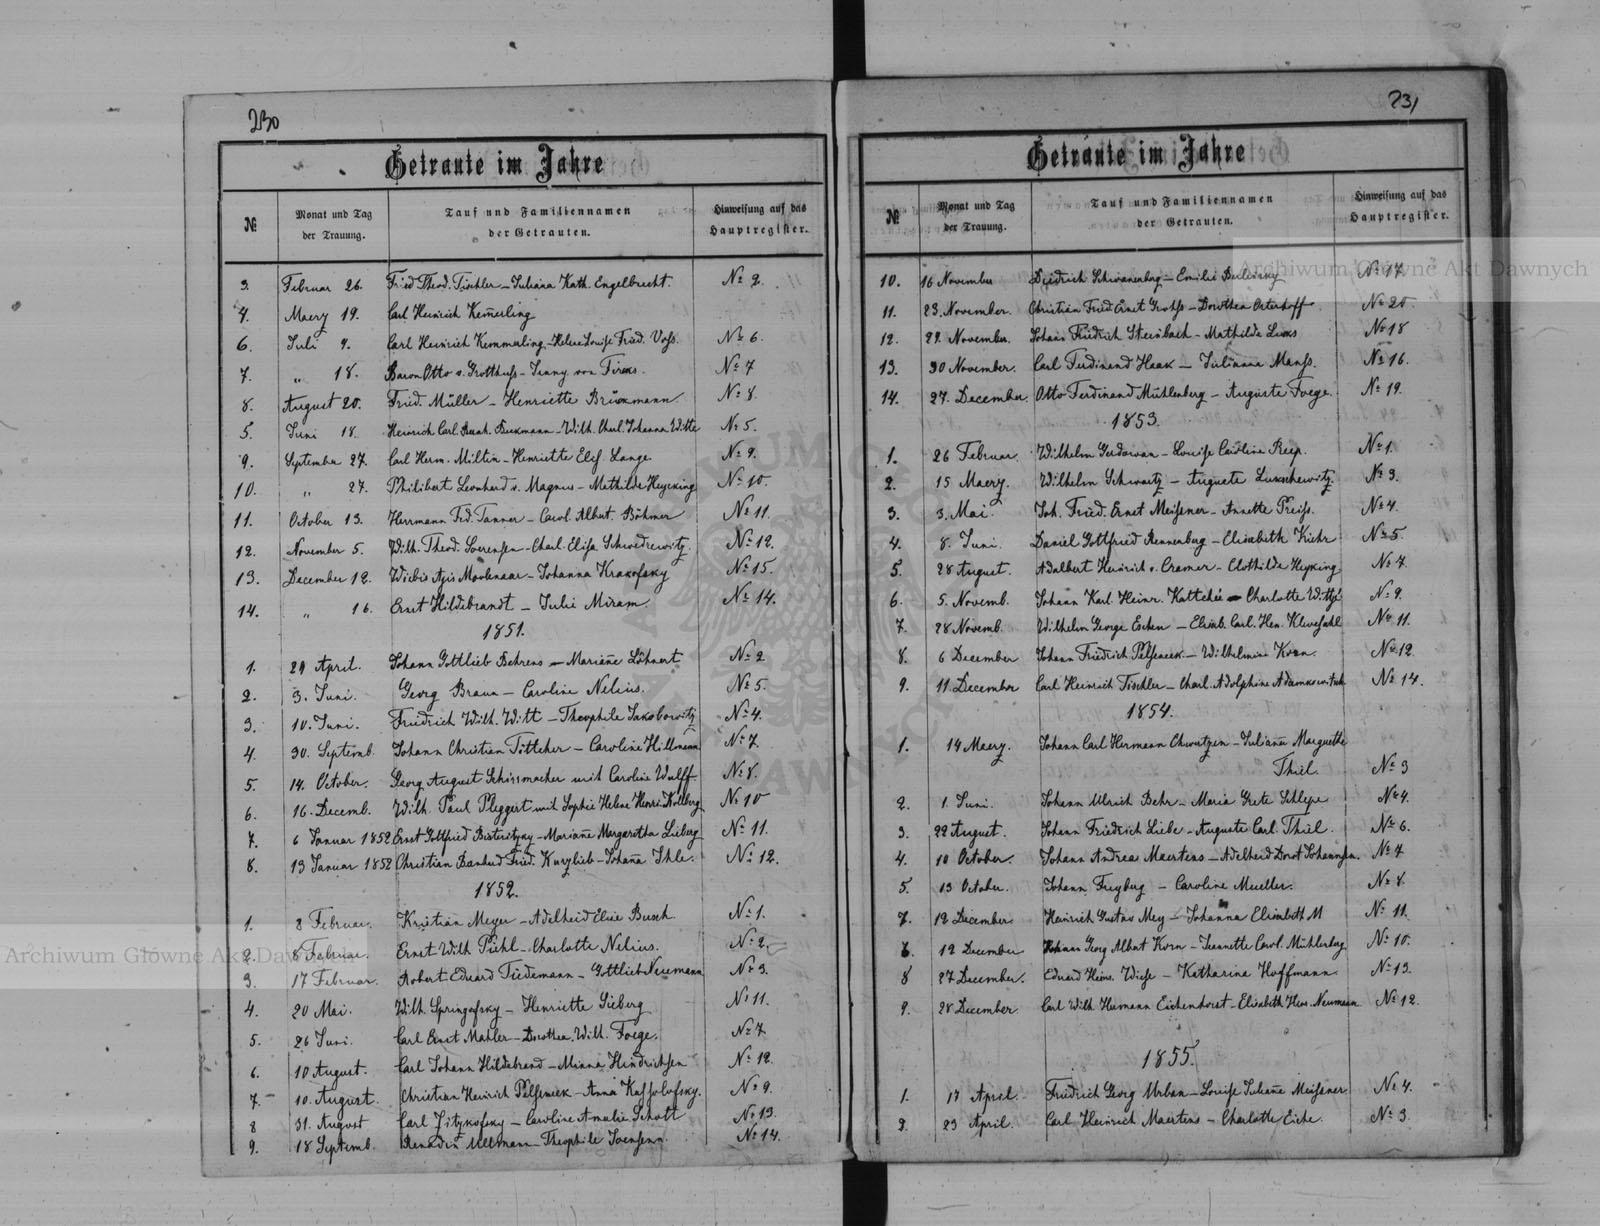 230
Getraute im Jahre
№
Monat und Tag
der Trauung.
Tauf und Familiennamen
der Getrauten.
Hinweisung auf das
Hauptregister.
3. Februar 26. Fried. Theod. Tischler – Juliana Kath. Engelbrecht. № 2.
4. Maerz 19. Carl Heinrich Kemerling
6. Juli 9. Carl Heinrich Kemmerling – Helene Louise Fried. Voss. № 6.
7. „ 18. Baron Otto v. Grotthuss – Jeany von Fircks. № 7
8. August 20. Fried. Müller – Henriette Brinkmann № 8.
5. Juni 18. Heinrich Carl Beckmann – Wilh. Charl. Johanna Witte № 5.
9. September 27. Carl Herm. Miltin – Henriette Elis. Lange № 9.
10. „ 27. Philibert Leonhard v. Magnus – Mathilde Heycking № 10.
11. October 13. Herrmann Frd. Tanner – Carol. Albert. Böhmer № 11.
12. November 5. Wilh. Theod. Soerensen – Charl. Elisa Schwedrewitz. № 12.
13. December 12. Wiebis Agis Moolenaar – Johanna Krakofsky № 15.
14. „ 16. Ernst Hildebrandt – Julie Miram. № 14.
1851.
1. 29 April. Johann Gottlieb Behrens – Mariane Löhnert № 2
2. 3. Juni. Georg Braun – Caroline Nelius. № 5.
3. 10. Juni. Friedrich Wilh. Witt – Theophile Jakobowitz № 4.
4. 30. Septemb. Johann Christian Tittcher – Caroline Hillmann № 7.
5. 14. October. Georg August Schirrmacher mit Caroline Wulff № 8.
6. 16. Decemb. Wilh. Paul Pleggert mit Sophie Helene Henri. Kolberg № 10
7. 6 Januar 1852 Ernst Gottfried Bistritzky – Mariane Margaretha Sieberg № 11.
8. 13 Januar 1852 Christian Fried. Kurzlieb – Johana Ihle. № 12.
1852.
1. 8 Februar. Kristian Meyer – Adelheid Elise Busch № 1.
2. 8 Februar. Ernst Wilh. Piehl – Charlotte Nelius. № 2.
3. 17 Februar. Robert Eduard Tiedemann – Gottlieb Neumann № 3.
4. 20 Mai. Wilh. Springofsky – Henriette Sieberg № 11.
5. 26 Juni. Carl Ernst Mahler – Dorothea Wilh. Foege. № 7
6. 10 August. Carl Johann Hildebrand – Minna Hindrichsen № 12.
7. 10. August. Christian Heinrich Pelseneek – Anna № 9.
8 31. August Carl Zitzkofsky – Caroline Amalie Schott № 13.
9. 18 Septemb. Ullmann – Theophile № 14.
231
Getraute im Jahre
№
Monat und Tag
der Trauung.
Tauf und Familiennamen
der Getrauten.
Hinweisung auf das
Hauptregister.
10. 16 November Diedrich Schwanenberg – Emilie № 17.
11. 23. November. Christian Fried. Ernst Grohss – Dorothea Osterhoff № 20.
12. 29. November. Johann Friedrich Steinbach – Mathilde № 18
13. 30 November. Carl Ferdinand Haak – Julianna Manss. № 16.
14. 27. December. Otto Ferdinand Mühlenberg – Auguste Foege. № 19.
1853.
1. 26 Februar. Wilhelm – Louise Caroline Reep. № 1.
2. 15 Maerz. Wilhelm Schwartz – Auguste Lukschewitz. № 3.
3. 3. Mai. Joh. Fried. Ernst Meissener – Annette Preiss. № 4.
4. 8. Juni. Daniel Gottfried Rennenberg – Elisabeth Kiehr № 5.
5. 28 August. Adalbert Heinrich v. Cramer – Clothilde Heyking № 7.
6. 5. Novemb. Johann Karl. Heinr. Kattchée – Charlotte № 9.
7. 28 Novemb. Wilhelm George Eschen – Elisab. Carl. Hen. Klevesahl № 11.
8. 6 December Johann Friedrich Pelseneek – Wilhelmine Korn. № 12
9. 11. December Carl Heinrich Tischler – Charl. Adolphine № 14.
1854.
1. 14 Maerz. Johann Carl Hermann – Juliane Marguethe
Thiel. № 3
2. 1. Juni. Johann Ulrich Behr – Maria Grete Schlepe № 4.
3. 22 August. Johann Friedrich Liebe – Auguste Carl. Thiel. № 6.
4. 10 October. Johann Andrea Maertens – Adelheid Dorot Johannsen. № 7
5. 13 October. Johann Freyberg – Caroline Mueller. № 8.
7. 12 December. Heinrich Gustav Mey – Johanna Elisabeth M № 11.
6. 12 December Georg Albert Korn – Jeannette Carol. Mühlenberg № 10.
8 27 December. Eduard Heinr. Wiese – Katharina Hoffmann № 13.
9. 28 December. Carl Wilh. Hermann Eichenhorst – Elisabeth Henr. Neumann № 12.
1855.
1. 17 April. Friedrich Georg Urban – Louise Juliane Meissener № 4.
2. 23 April. Carl Heinrich Maertens – Charlotte Eiche. № 3.
Archiwum Główne Akt Dawnych
Archiwum Główne Akt Dawnych